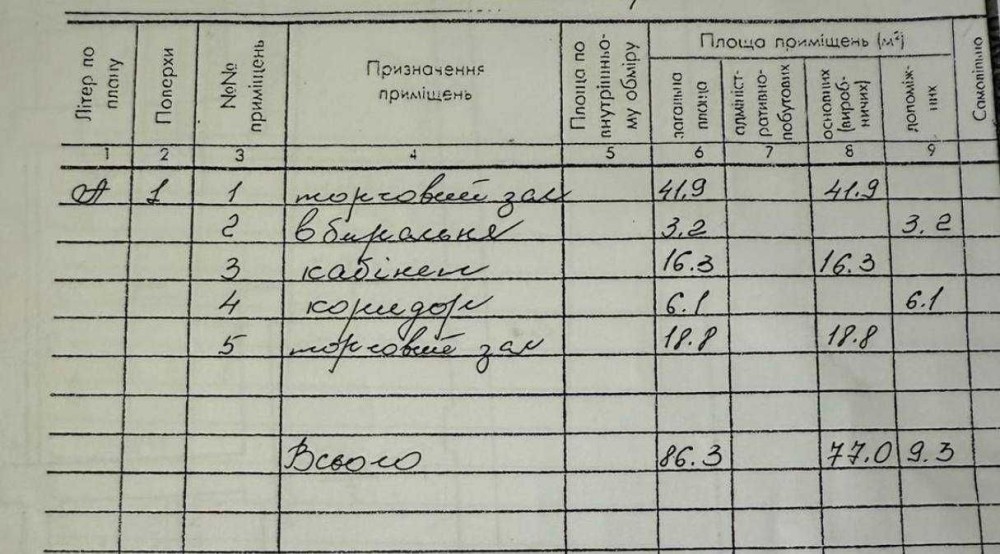 Літер по плану | Поверхи | №№ приміщень | Призначення приміщень | Площа по внутрішньо-му обміру | Площа приміщень (м²) | Самовільно
загальна площа | адмініст-ративно-побутових | основних (вироб-ничих) | допоміж-них
1 2 3 4 5 6 7 8 9
А 1 1 торговий зал 41.9 41.9
2 вбиральня 3.2 3.2
3 кабінет 16.3 16.3
4 коридор 6.1 6.1
5 торговий зал 18.8 18.8
Всього 86.3 77.0 9.3